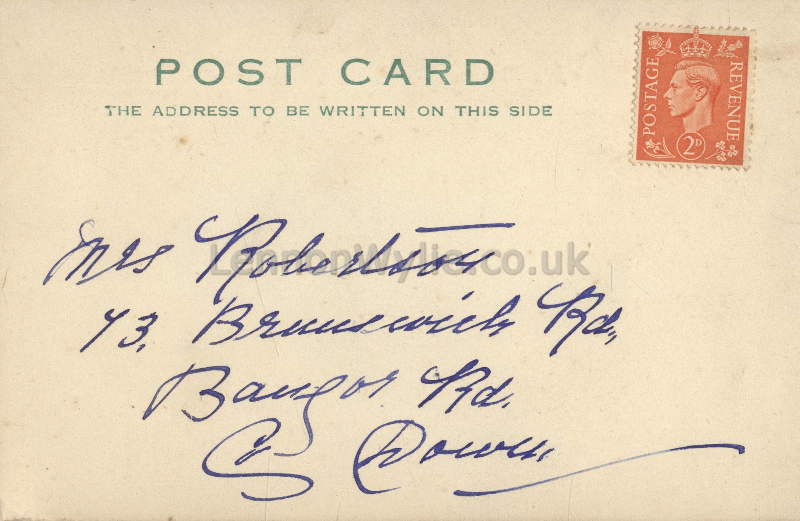 POST CARD
THE ADDRESS TO BE WRITTEN ON THIS SIDE
POSTAGE REVENUE
2D
Mrs Robertson
LennonWylie.co.uk
73, Brunswick Rd.,
Bangor Rd.
Co Down